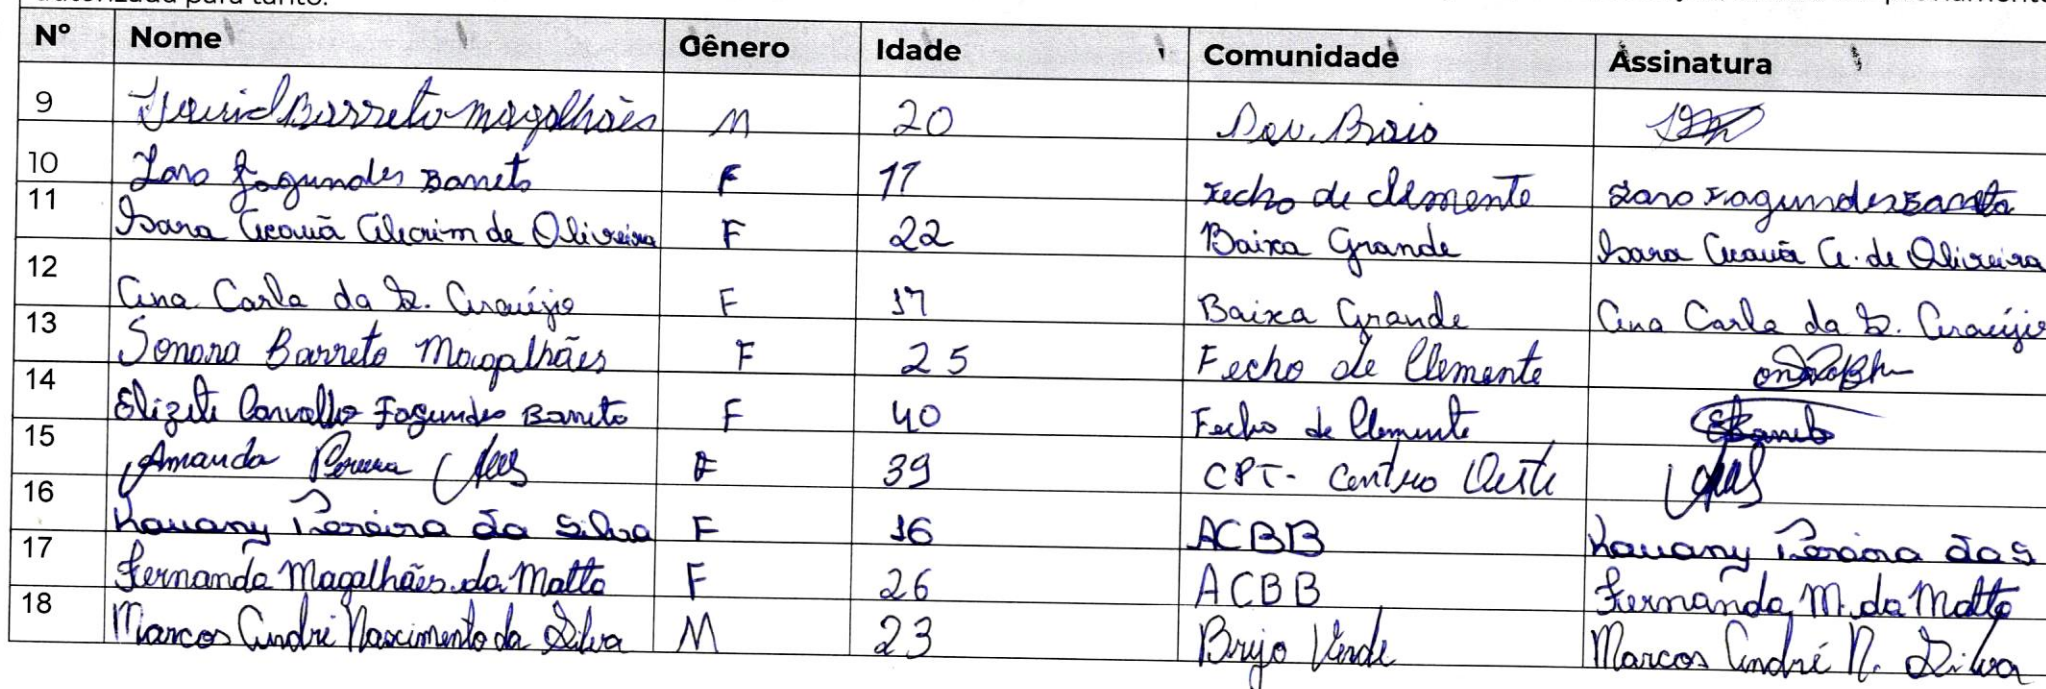 autorizada para tanto.
Nº Nome Gênero Idade Comunidade Assinatura
9 Barreto Magalhães M 20
10 Fagundes Barreto F 17 Fecho de Clemente Fagundes Barreto
11 Isara Acauã Alecrim de Oliveira F 22 Baixa Grande Isara Acauã A. de Oliveira
12 Ana Carla da S. Araújo F 17 Baixa Grande Ana Carla da S. Araújo
13 Sonora Barreto Magalhães F 25 Fecho de Clemente
14 Elizete Carvalho Fagundes Barreto F 40 Fecho de Clemente
15 Amanda Pereira F 39 CPT- Centro Oeste
16 Kauany Pereira da Silva F 16 ACBB Kauany Pereira da S
17 Fernanda Magalhães da Matta F 26 ACBB Fernanda M. da Matta
18 Marcos André Nascimento da Silva M 23 Brejo Verde Marcos André N. Silva